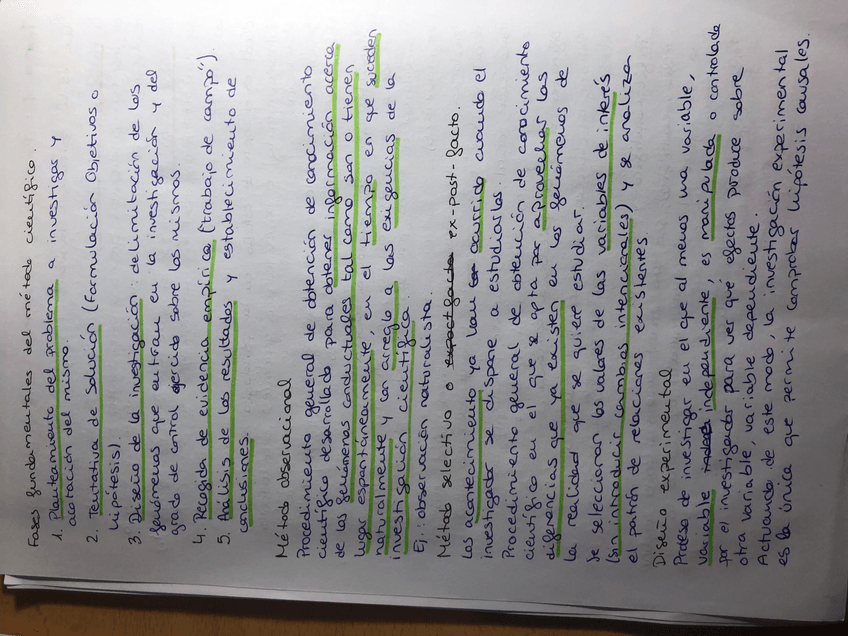 Fases fundamentales del método científico.
1. Planteamiento del problema a investigar y
acotación del mismo.
2. Tentativa de Solución (Formulación Objetivos o
hipótesis).
3. Diseño de la investigación: delimitación de los
fenómenos que entran en la investigación y del
grado de control ejercido sobre los mismos
4. Recogida de evidencia empírica (trabajo de campo").
5. Análisis de los resultados y establecimiento de
conclusiones.
Método observacional
Procedimiento general de obtención de conocimiento
científico desarrollado para obtener información acerca
de los fenómenos conductuales tal como son o tienen
lugar espontáneamente, en el tiempo en que suceden
naturalmente y con arreglo a las exigencias de la
investigación científica.
Ej.: observación naturalista.
Método selectivo o ex-post-facto.
Los acontecimiento ya han ocurrido cuando el
investigador se dispone a estudiarlos.
Procedimiento general de obtención de conocimiento
científico en el que se opta por aprovechar las
diferencias que ya existen en los fenómenos de
la realidad que se quiere estudiar.
Se seleccionar los valores de las variables de interés
(sin introducir cambios intencionales) y se analiza
el patrón de relaciones existentes.
Diseño experimental
Proceso de investigar en el que al menos una variable,
variable independiente, es manipulada o controlada
por el investigador para ver qué efectos produce sobre
otra variable, variable dependiente.
Actuando de este modo, la investigación experimental
es la única que permite comprobar hipótesis causales.